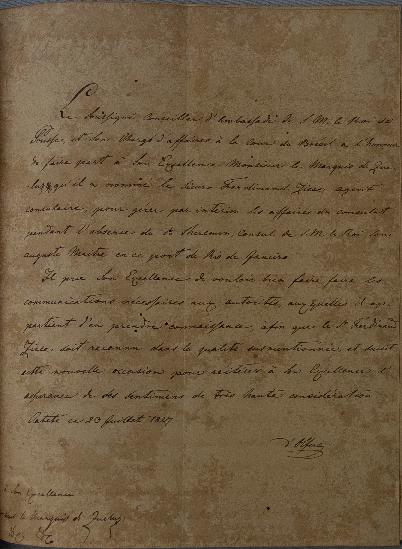 Le Soussigné Conseiller d'Ambassade de S. M. le Roi de
Prusse, et Son Chargé d'affaires à la Cour du Brésil a l'honneur
de faire part à Son Excellence Monsieur le Marquis de Que-
luz, qu'il a nommé le Sieur Ferdinand, agent
consulaire, pour gérer par intérim les affaires du consulat
pendant l'absence du Sr. Consul de S. M. le Roi Son
auguste Maître en ce port de Rio de Janeiro.
Il prie Son Excellence de vouloir bien faire faire les
communications nécessaires aux autorités, auxquelles il ap-
partient d'en prendre connaissance, afin que le Sr. Ferdinand
soit reconnu dans la qualité susmentionnée, et saisit
cette nouvelle occasion pour réitérer à Son Excellence l'
assurance de ses sentimens de très haute considération
Catete ce 23 Juillet 1827
d'Olfers
à Son Excellence
le Marquis de Queluz